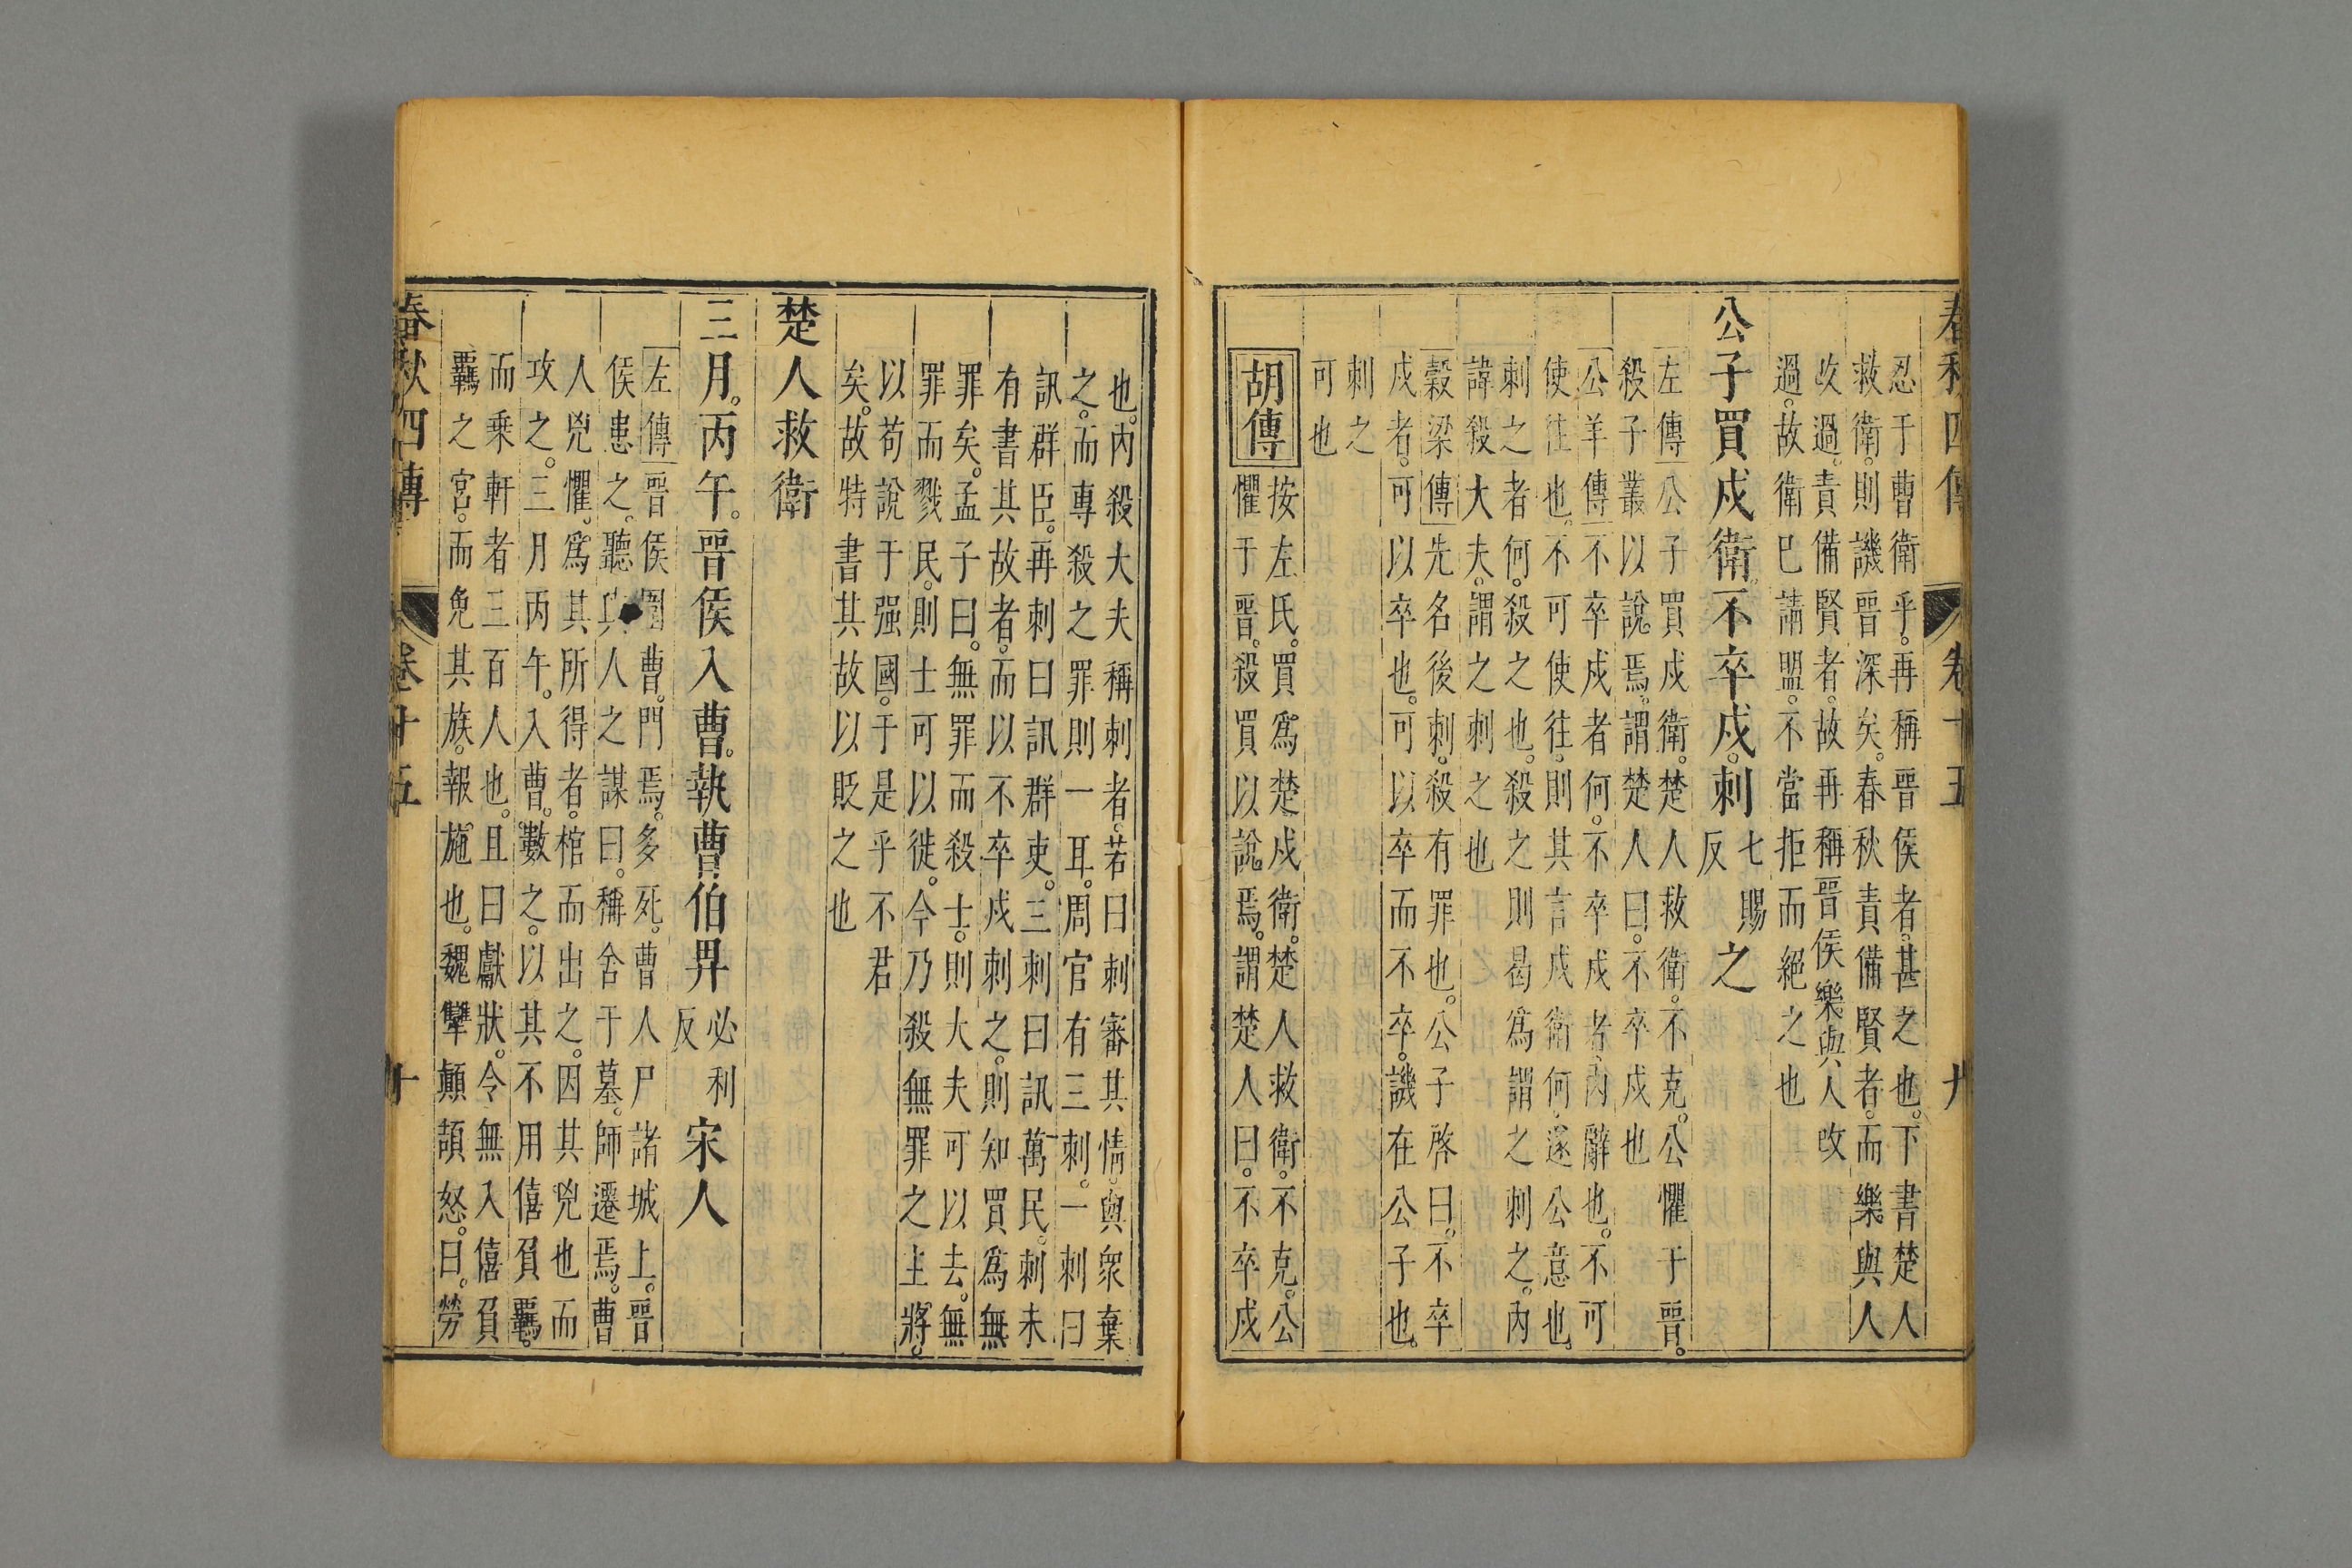 春秋四傳 卷十五 九
忍于曹衛乎。再稱晉侯者。甚之也。下書楚人
救衛。則譏晉深矣。春秋責備賢者。而樂與人
改過。責備賢者。故再稱晉侯樂與人改
過。故衛已請盟。不當拒而絕之也
公子買戍衛。不卒戍。刺七賜反之
左傳公子買戍衛。楚人救衛。不克。公懼于晉。
殺子叢以說焉。謂楚人曰。不卒戍也
公羊傳不卒戍者何。不卒戍者。內辭也。不可
使往也。不可使往。則其言戍衛何。遂公意也。
刺之者何。殺之也。殺之則曷為謂之刺之。內
諱殺大夫。謂之刺之也
穀梁傳先名後刺。殺有罪也。公子啓曰。不卒
戍者。可以卒也。可以卒而不卒。譏在公子也。
刺之
可也
胡傳
按左氏。買爲楚戍衛。楚人救衛。不克。公
懼于晉。殺買以說焉。謂楚人曰。不卒戍
也。內殺大夫稱刺者。若曰刺審其情。與衆棄
之。而專殺之罪則一耳。周官有三刺。一刺曰
訊群臣。再刺曰訊群吏。三刺曰訊萬民。刺未
有書其故者。而以不卒戍刺之。則知買爲無
罪矣。孟子曰。無罪而殺士。則大夫可以去。無
罪而戮民。則士可以徙。今乃殺無罪之主將。
以苟說于强國。于是乎不君
矣。故特書其故以貶之也
楚人救衛
三月。丙午。晉侯入曹。執曹伯畀必利反宋人
左傳晉侯圍曹。門焉。多死。曹人尸諸城上。晉
侯患之。聽人之謀曰。稱舍于墓。師遷焉。曹
人兇懼。爲其所得者。棺而出之。因其兇也而
攻之。三月丙午。入曹。數之。以其不用僖負羈。
而乘軒者三百人也。且曰獻狀。令無入僖負
羈之宮。而免其族。報施也。魏犨顛頡怒。曰。勞
春秋四傳 卷十五 十